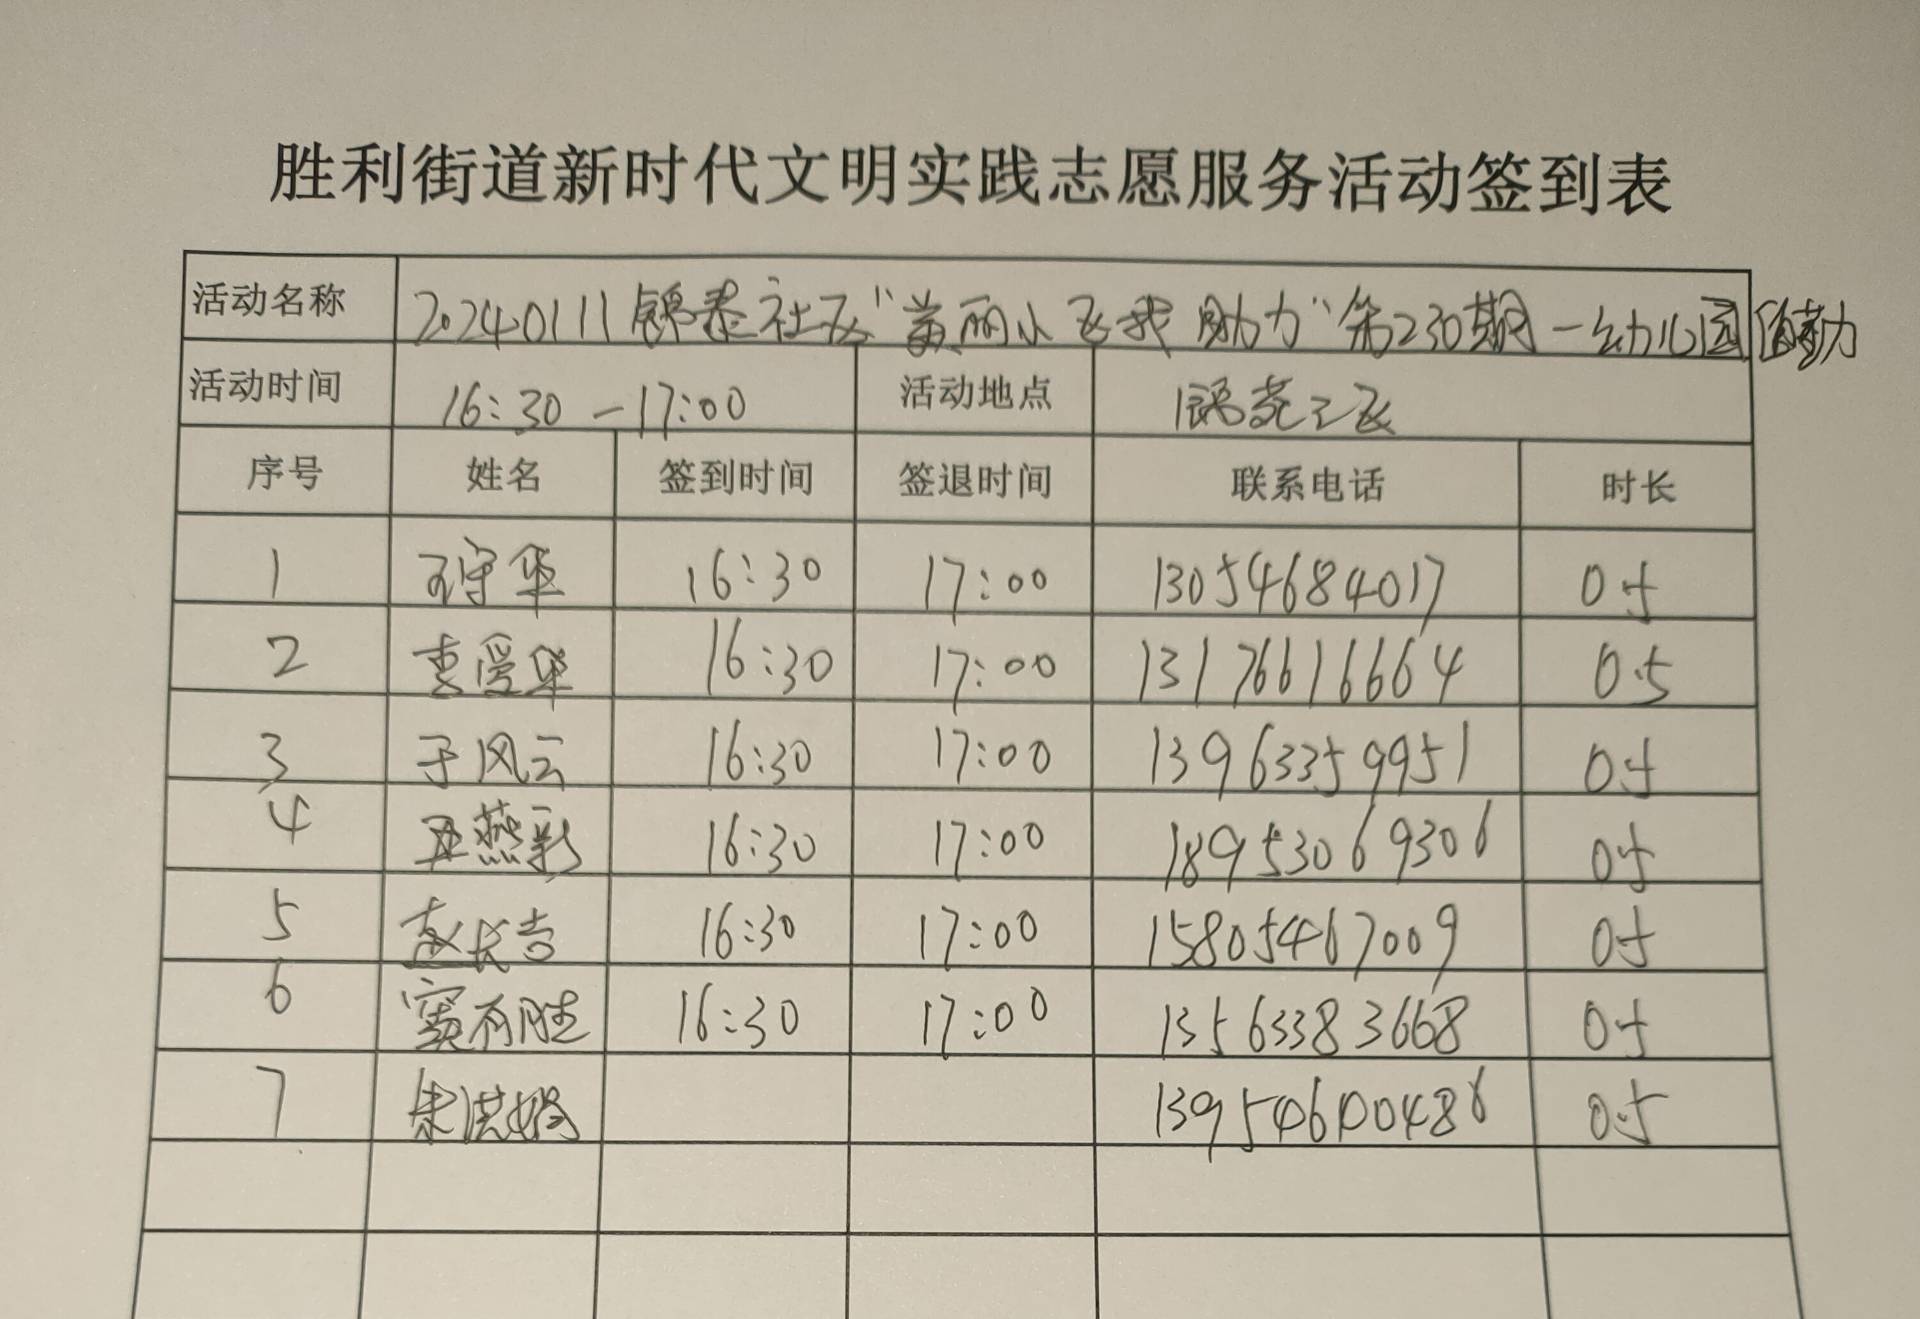 胜利街道新时代文明实践志愿服务活动签到表
活动名称 20240111锦泰社区"美丽小区我助力"第230期-幼儿园值勤
活动时间 16:30-17:00 活动地点 锦苑三区
序号 姓名 签到时间 签退时间 联系电话 时长
1 王守华 16:30 17:00 13054684017 0.5
2 李爱华 16:30 17:00 13176616664 0.5
3 于风云 16:30 17:00 13963359951 0.5
4 王燕彩 16:30 17:00 18953069306 0.5
5 赵长吉 16:30 17:00 15805467009 0.5
6 窦有胜 16:30 17:00 13563383668 0.5
7 朱洪娟 13954600486 0.5